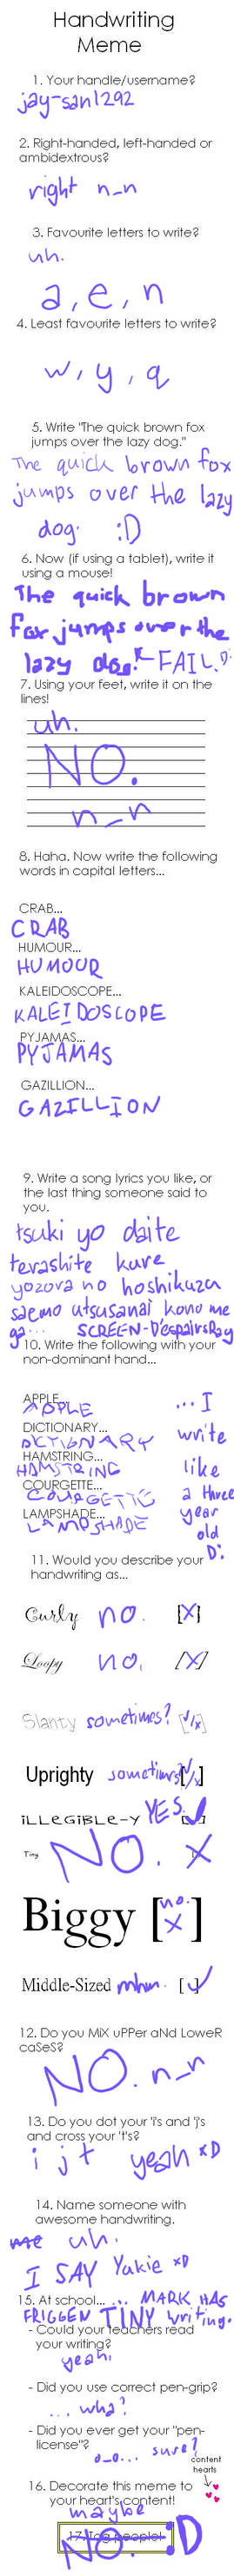 Handwriting
Meme
1. Your handle/username?
jay-san1292
2. Right-handed, left-handed or
ambidextrous?
right n_n
3. Favourite letters to write?
uh.
a, e, n
4. Least favourite letters to write?
w, y, q
5. Write "The quick brown fox
jumps over the lazy dog."
The quick brown fox
jumps over the lazy
dog. :D
6. Now (if using a tablet), write it
using a mouse!
The quick brown
fox jumps over the
lazy dog! ←FAIL. D:
7. Using your feet, write it on the
lines!
uh.
NO.
n_n
8. Haha. Now write the following
words in capital letters...
CRAB...
CRAB
HUMOUR...
HUMOUR
KALEIDOSCOPE...
KALEIDOSCOPE
PYJAMAS...
PYJAMAS
GAZILLION...
GAZILLION
9. Write a song lyrics you like, or
the last thing someone said to
you.
tsuki yo daite
terashite kure
yozora no hoshikuzu
saemo utsusanai kono me
ga... SCREEN-D'espairsRay
10. Write the following with your
non-dominant hand...
APPLE...
APPLE
DICTIONARY...
DICTIONARY
HAMSTRING...
HAMSTRING
COURGETTE...
COURGETTE
LAMPSHADE...
LAMPSHADE
... I
write
like
a three
year
old
D:
11. Would you describe your
handwriting as...
Curly no. [X]
Loopy no. [X]
Slanty sometimes? [√/x]
Uprighty sometimes [√/x]
iLLeGiBLe-y YES. [√]
Tiny NO. X
Biggy [no. X]
Middle-Sized mhm. [√]
12. Do you MiX uPPer aNd LoweR
caSeS?
NO. n_n
13. Do you dot your 'i's and 'j's
and cross your 't's?
i j t yeah xD
14. Name someone with
awesome handwriting.
me uh.
I SAY Yukie xD
15. At school... ... MARK HAS
FRIGGEN TINY writing.
- Could your teachers read
your writing?
yeah.
- Did you use correct pen-grip?
... wha?
- Did you ever get your "pen-
license"?
o_o... sure?
content
hearts
16. Decorate this meme to
your heart's content!
maybe
17. Tag people!
NO. :D